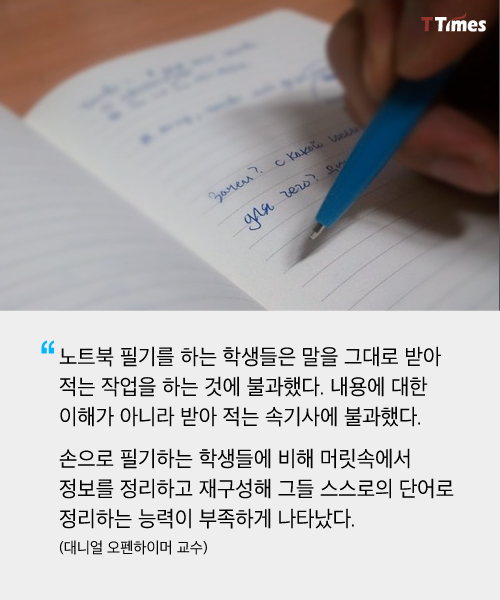 TTimes
Зачем? с какой
для чего?
“노트북 필기를 하는 학생들은 말을 그대로 받아
적는 작업을 하는 것에 불과했다. 내용에 대한
이해가 아니라 받아 적는 속기사에 불과했다.
손으로 필기하는 학생들에 비해 머릿속에서
정보를 정리하고 재구성해 그들 스스로의 단어로
정리하는 능력이 부족하게 나타났다.
(대니얼 오펜하이머 교수)